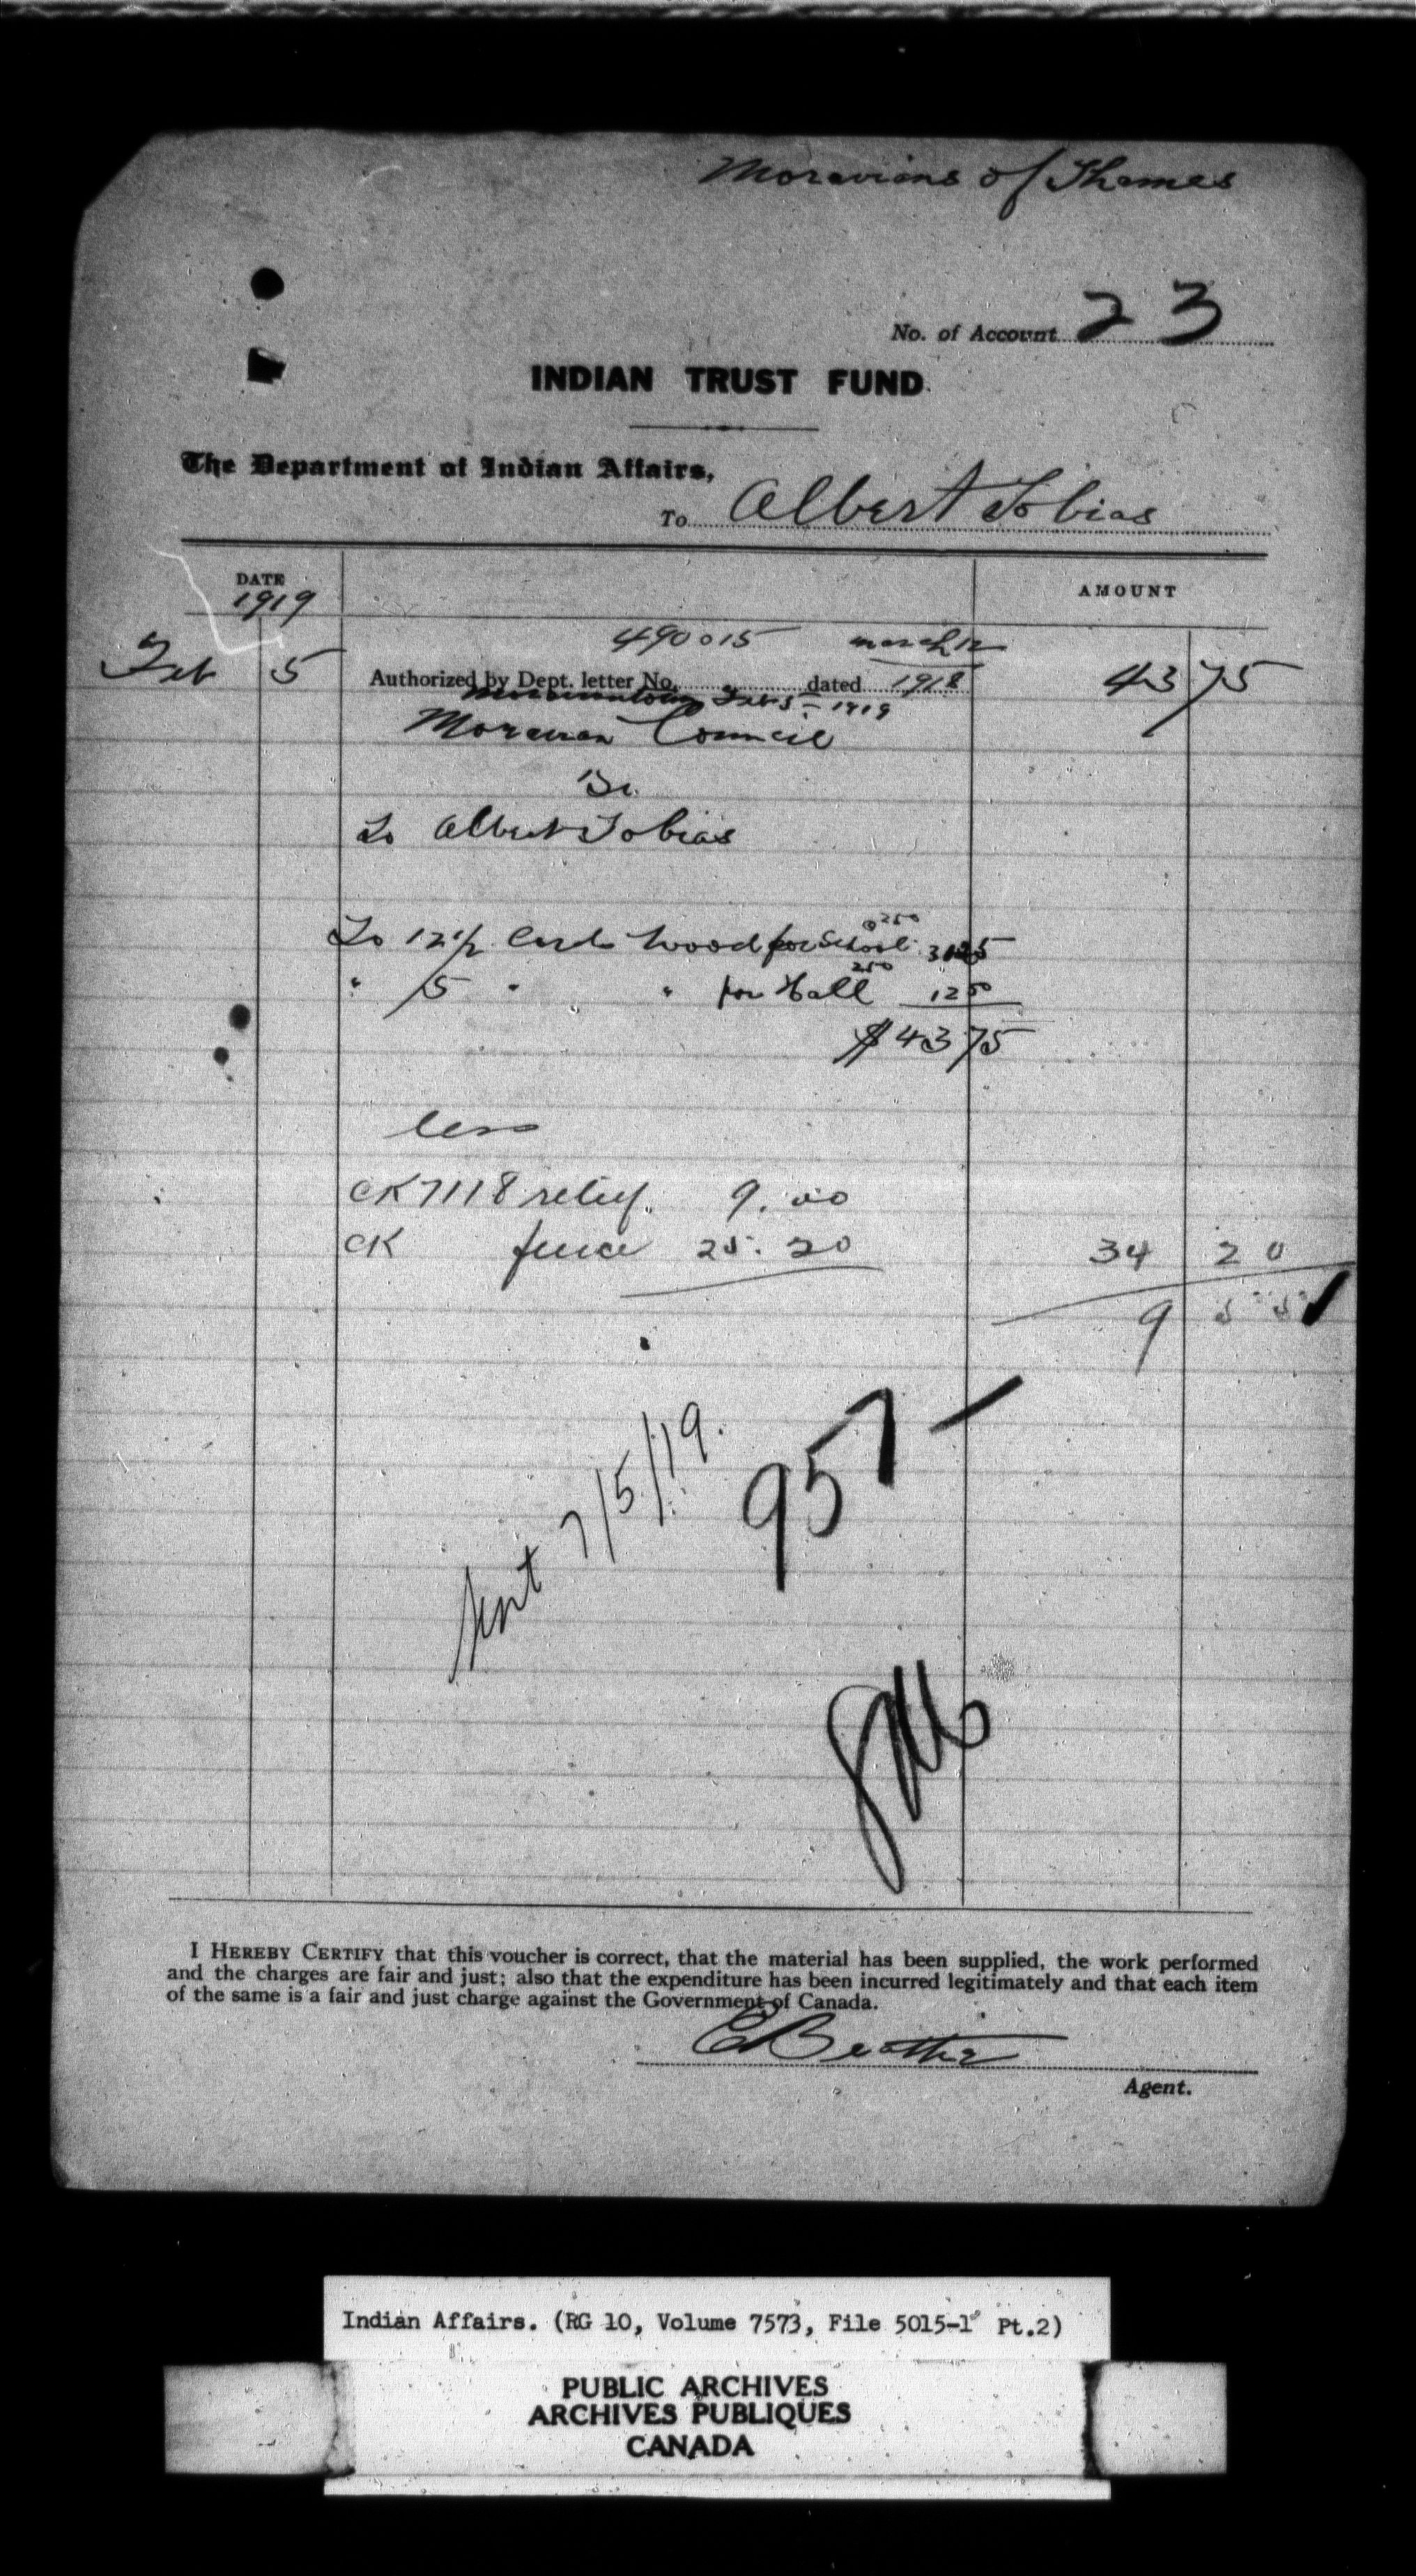 Moravians of Thames
No. of Account 23
INDIAN TRUST FUND.
The Department of Indian Affairs,
To Albert Tobias
DATE
AMOUNT
1919
490015 march 12
Feb 5 Authorized by Dept. letter No. dated 1918 43 75
Feb 5 - 1919
Moravian Council
Dr.
To Albert Tobias
To 12 1/2 Cords Wood for School @ 250 31 25
" 5 " " for Hall 250 12 50
$ 43 75
less
CK 7118 relief. 9.00
CK fence 25.20 34 20
9 55 ✓
957 -
sent 7/5/19.
I HEREBY CERTIFY that this voucher is correct, that the material has been supplied, the work performed
and the charges are fair and just; also that the expenditure has been incurred legitimately and that each item
of the same is a fair and just charge against the Government of Canada.
E Beattie
Agent.
Indian Affairs. (RG 10, Volume 7573, File 5015-1 Pt.2)
PUBLIC ARCHIVES
ARCHIVES PUBLIQUES
CANADA